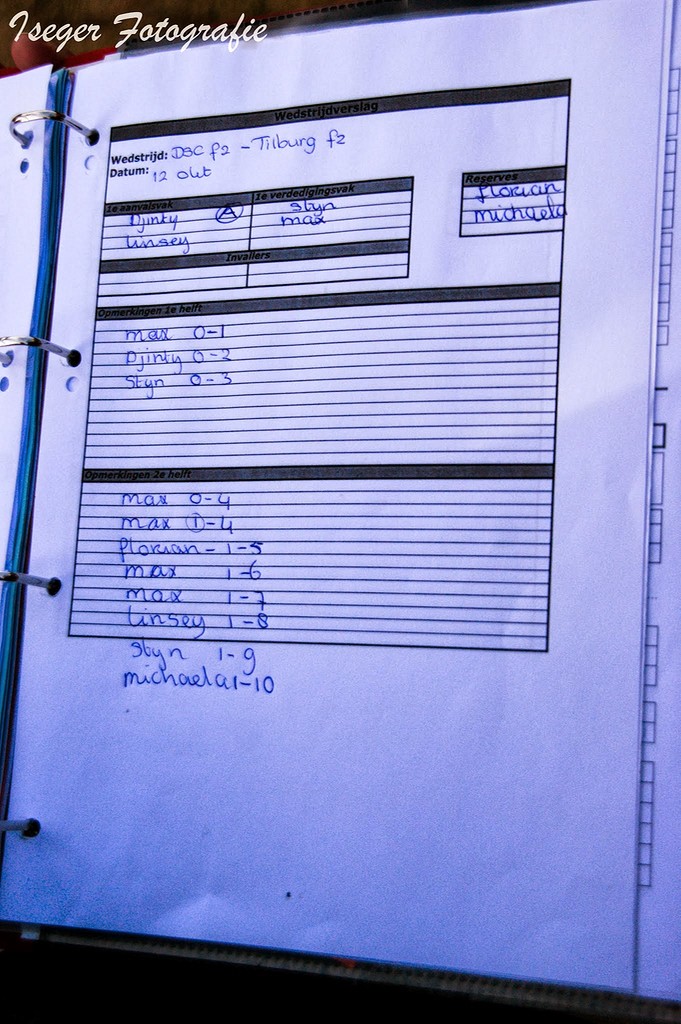 Iseger Fotografie
Wedstrijdverslag
Wedstrijd: DSC f2 - Tilburg f2
Datum: 12 okt
1e aanvalsvak 1e verdedigingsvak
Djinty A Styn
Linsey max
Reserves
florian
michaela
Invallers
Opmerkingen 1e helft
max 0-1
Djinty 0-2
Styn 0-3
Opmerkingen 2e helft
max 0-4
max 1-4
florian - 1-5
max 1-6
max 1-7
Linsey 1-8
Styn 1-9
michaela 1-10